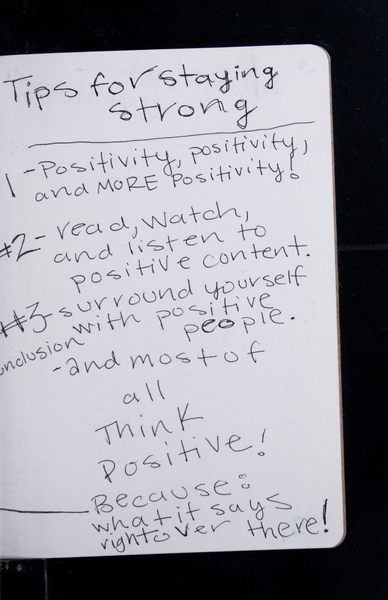 Tips for staying
strong
1 - Positivity, positivity,
and MORE Positivity!
#2 - read, watch,
and listen to
positive content.
#3 - surround yourself
with positive
people.
onclusion
- and most of
all
Think
Positive!
Because:
what it says
right over there!